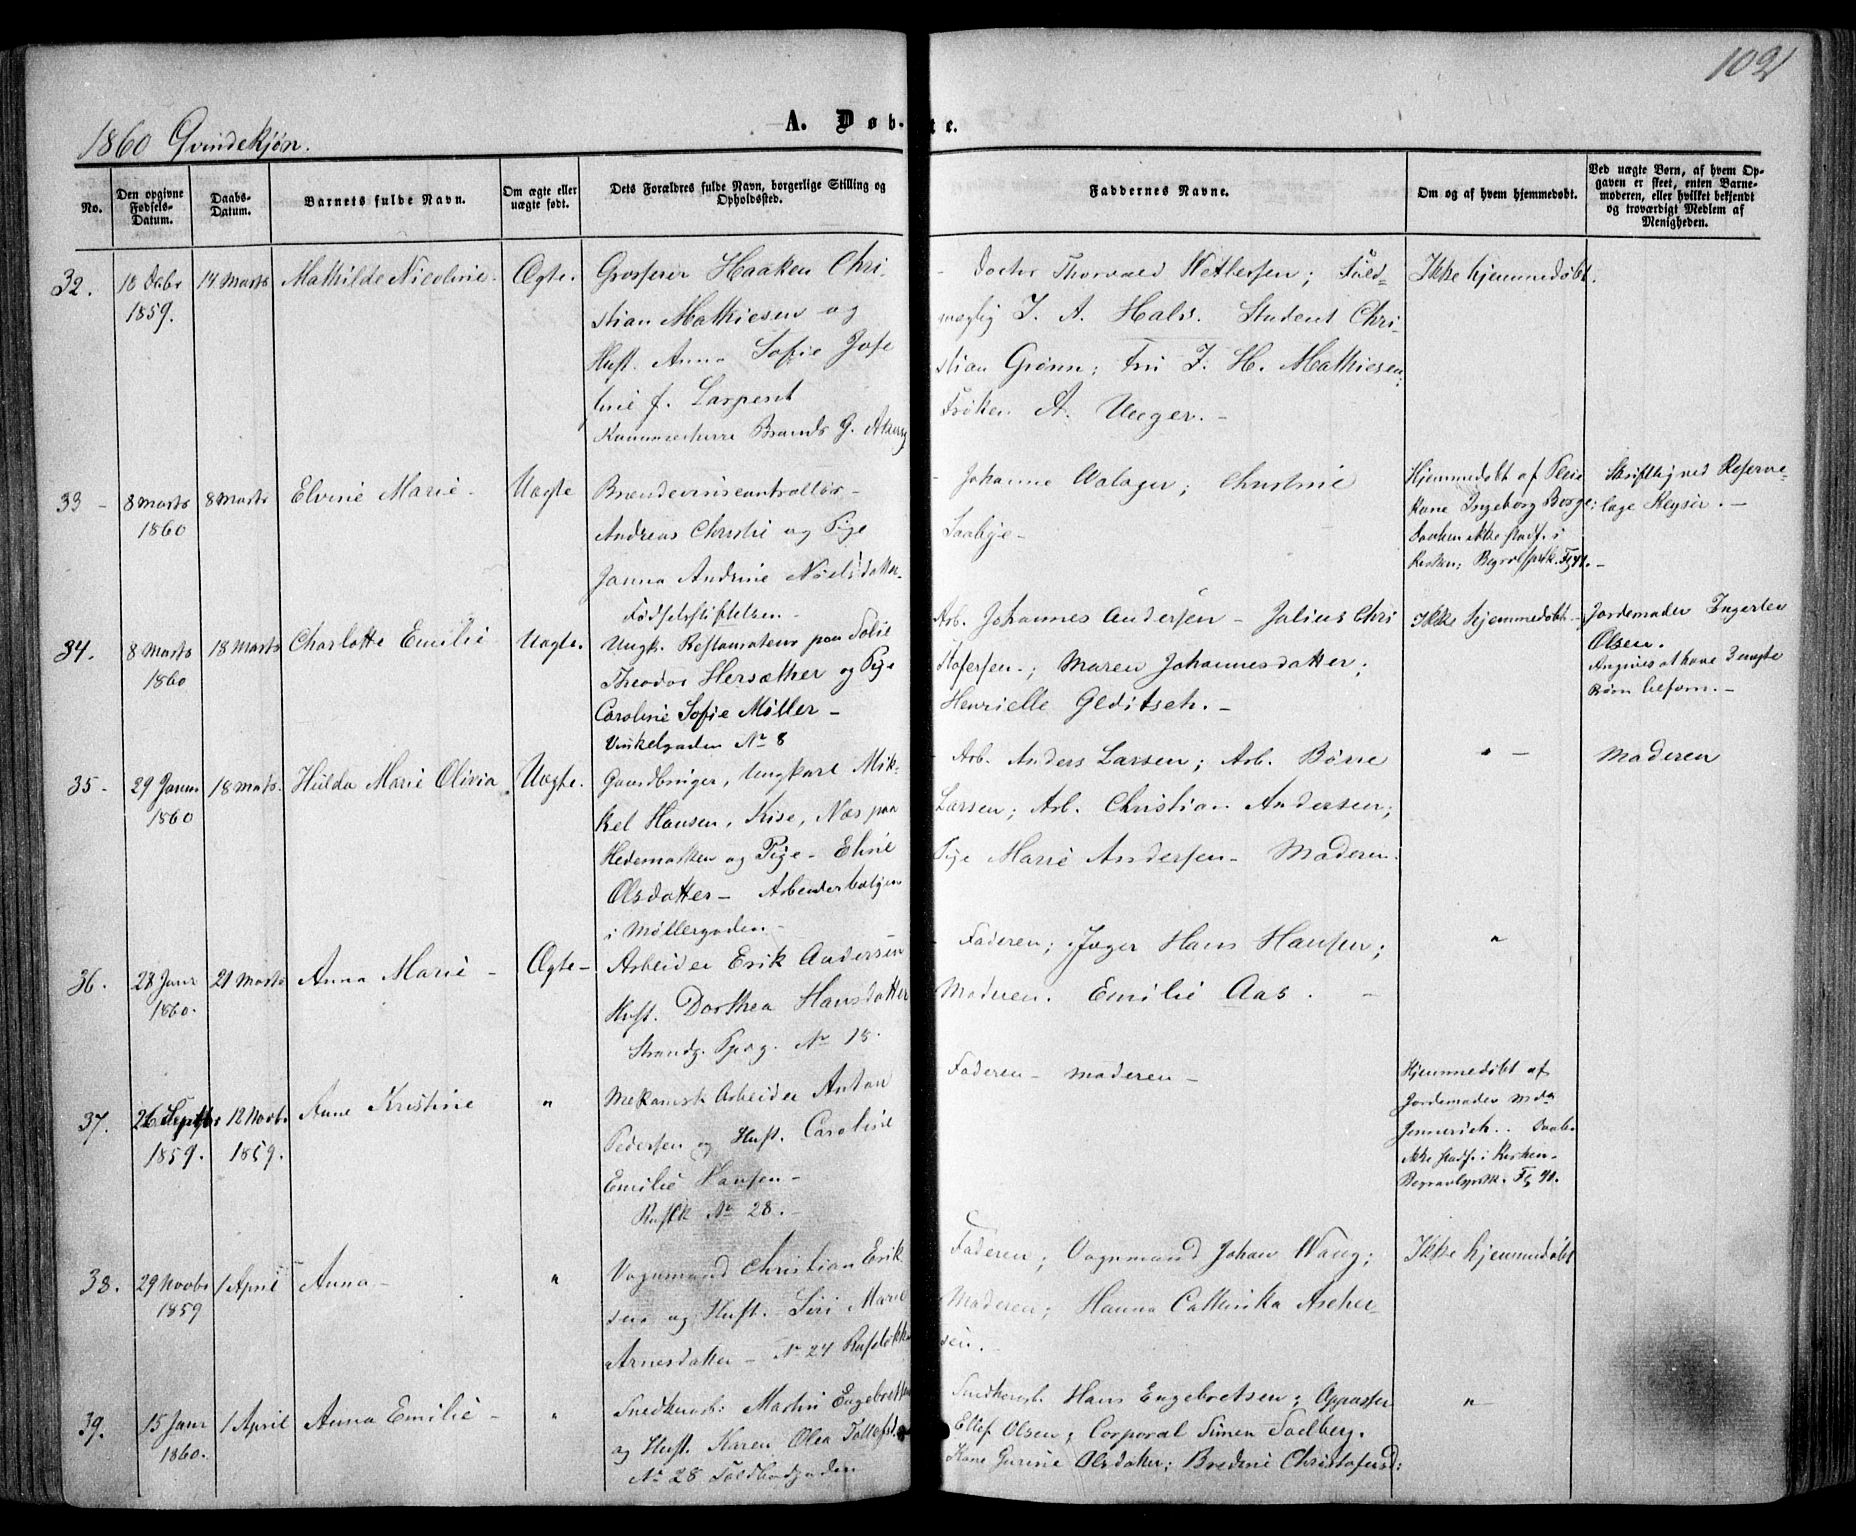 102
A. Døbte.
1860 Qvindekjøn.
No.
Den opgivne Fødsels-Datum.
Daabs-Datum.
Barnets fulde Navn.
Om ægte eller uægte født.
Dets Forældres fulde Navn, borgerlige Stilling og Opholdssted.
Faddernes Navne.
Om og af hvem hjemmedøbt.
Ved uægte Børn, af hvem Opgaven er skeet, enten Barnemoderen, eller hvilket bekjendt og troværdigt Medlem af Menigheden.
32.
10 Decbr 1859.
14 Marts
Mathilde Nicoline.
Ægte.
Grosserer Haaken Chri-
stian Mathiesen og
Hust. Anna Sofie Jose
line f. Larpent
Kammerherre Brands G.
Doctor Thorvald Vetlesen; Fuld-
mægtig J. A. Hals. Student Chri-
stian Grønn; Fru J. H. Mathiesen;
Frøken A. Unger. -
Ikke hjemmedøbt.
33 -
8 Marts 1860
8 Marts
Elvine Marie -
Uægte
Brændeviinscontrollør -
Andreas Christie og Pige
Janna Andrine Nielsdatter.
Fødselsstiftelsen -
Johanne ; Christine
Saabye -
Hjemmedøbt af
Kone Ingeborg Borge;
Daaben ikke stadf. i
Kirken;
Skriftlig ved Reserve-
læge Keyser. -
34.
8 Marts 1860
18 Marts
Charlotte Emilie
Uægte.
Ungk. Restaurateur paa
Theodor Hersæther og Pige
Caroline Sofie Møller -
Vinkelgaden No 8
Arb. Johannes Andersen - Julius Chri
stofersen -; Maren Johannesdatter;
Henriette Gleditsch. -
Ikke hjemmedøbt -
Jordemoder Ingerten
Olsen.
Angives at have 3 uægte
Børn tilforn. -
35 -
29 Januar 1860
18 Marts.
Hulda Marie Olivia
Uægte.
Gaardbruger, Ungkarl Mik-
kel Hansen, Kise, Næs paa
Hedemarken og Pige - Eline
Olsdatter - Arbeiderboligen
i Møllergaden -
- Arb. Anders Larsen; Arb. Børre
Larsen; Arb. Christian Andersen;
Pige Marie Andersen - Moderen.
" -
Moderen
36.
28 Janr 1860.
21 Marts
Anna Marie -
Ægte -
Arbeider Erik Andersen
Hust. Dorthea Hansdatter
Strandg. No 15.
- Faderen; Jæger Hans Hansen;
Moderen. Emilie Aas. -
"
37.
26 Septbr 1859.
12 Novbr 1859.
Anne Kristine
"
Mekanisk Arbeider Anton
Pedersen og Hust. Caroline
Emilie Hansen -
No 28. -
Faderen - Moderen -
Hjemmedøbt af
Jordemoder
Jennerich. . Daab.
ikke stadf. i Kirken -
38.
29 Novbr 1859
1 April
Anna -
"
Vognmand Christian Erik
sen og Hust. Siri Marie
Arnesdatter - No 24
Faderen; Vognmand Johan Wang;
Moderen; Hanna Cathrinka Ascher-
sen. -
Ikke hjemmedøbt
39.
15 Janr 1860.
1 April
Anna Emilie -
"
Snedkersv: Martin Engebretsen
og Hust. Karen Olea
No 28
Snedkersv. Hans Engebretsen; Oppasser
Ellef Olsen; Corporal Simen Solberg.
Kone Gurine Olsdatter; Bredine Christofersd:
" -